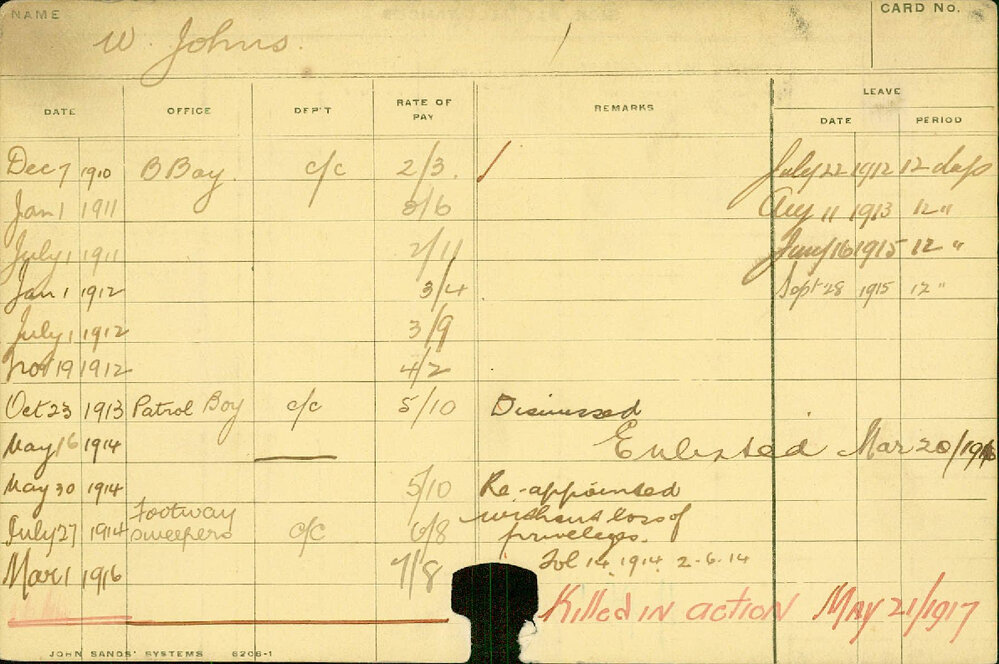 NAME W. Johns. CARD No.
LEAVE
DATE OFFICE DEP'T RATE OF PAY REMARKS DATE PERIOD
Dec 7 1910 B Boy. c/c 2/3. July 22 1912 12 days
Jan 1 1911 2/6 Aug 11 1913 12 "
July 1 1911 2/11 Jany 16 1915 12 "
Jan 1 1912 3/4 Sept 28 1915 12 "
July 1 1912 3/9
Nov 19 1912 4/2
Oct 23 1913 Patrol Boy c/c 5/10 Dismissed
May 16 1914 Enlisted Mar 20/1916
May 30 1914 5/10 Re-appointed
July 27 1914 Footway sweepers c/c 6/8 without loss of
priveleges.
Mar 1 1916 7/8 Fol 14. 1914 2-6-14
Killed in action May 21/1917
JOHN SANDS' SYSTEMS 6206-1